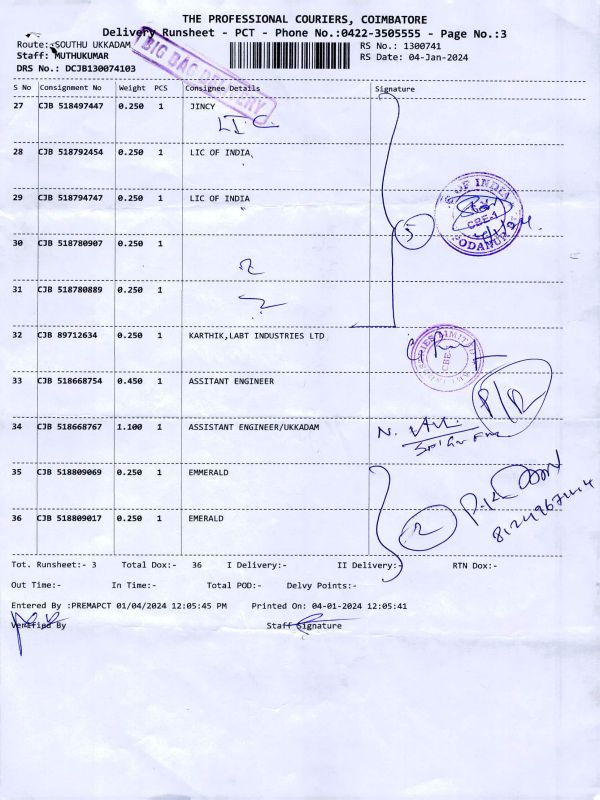 THE PROFESSIONAL COURIERS, COIMBATORE
Delivery Runsheet - PCT - Phone No.:0422-3505555 - Page No.:3
Route:-SOUTHU UKKADAM
RS No.: 1300741
Staff: MUTHUKUMAR
RS Date: 04-Jan-2024
DRS No.: DCJB130074103
BIG BAG DELIVERY
S No Consignment No Weight PCS Consignee Details Signature
27 CJB 518497447 0.250 1 JINCY
LIC
28 CJB 518792454 0.250 1 LIC OF INDIA
29 CJB 518794747 0.250 1 LIC OF INDIA
OF INDIA
CBE-1
PODANUR
5
30 CJB 518780907 0.250 1
31 CJB 518780889 0.250 1
32 CJB 89712634 0.250 1 KARTHIK,LABT INDUSTRIES LTD
33 CJB 518668754 0.450 1 ASSITANT ENGINEER
34 CJB 518668767 1.100 1 ASSISTANT ENGINEER/UKKADAM
35 CJB 518809069 0.250 1 EMMERALD
36 CJB 518809017 0.250 1 EMERALD
2
Tot. Runsheet:- 3 Total Dox:- 36 I Delivery:- II Delivery:- RTN Dox:-
Out Time:- In Time:- Total POD:- Delvy Points:-
Entered By :PREMAPCT 01/04/2024 12:05:45 PM Printed On: 04-01-2024 12:05:41
Verified By Staff Signature